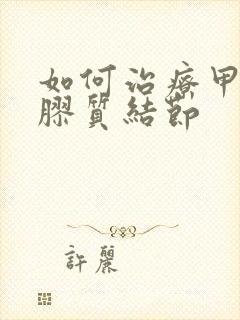 如何治療甲
膠質結節
許麗